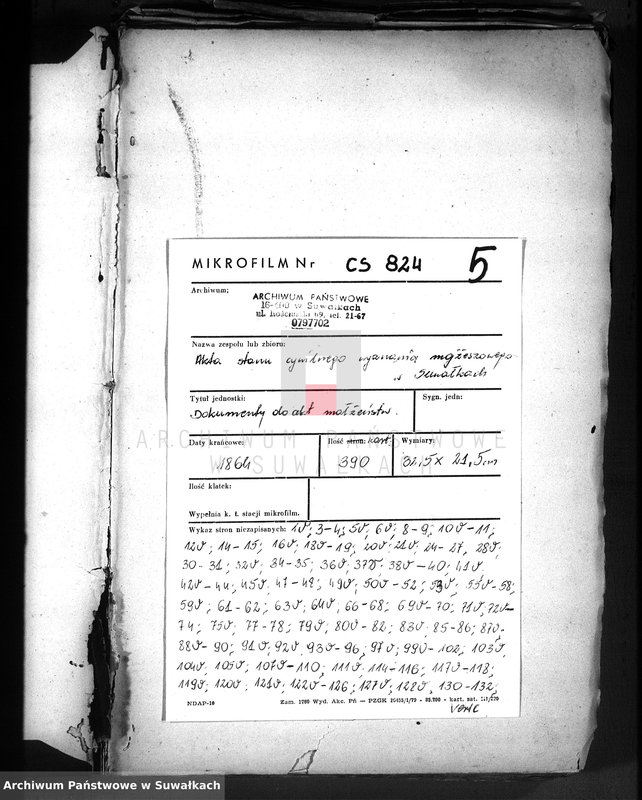 MIKROFILM Nr CS 824 5
Archiwum:
ARCHIWUM PAŃSTWOWE
16-400 w Suwałkach
ul. Kościuszki 69, tel. 21-67
0797702
Nazwa zespołu lub zbioru:
Akta stanu cywilnego wyznania mojżeszowego
w Suwałkach
Tytuł jednostki: Sygn. jedn:
Dokumenty do akt małżeństw.
Daty krańcowe: Ilość stron: kart Wymiary:
1864 390 32,5 x 21,5 cm
ARCHIWUM PAŃSTWOWE
W SUWAŁKACH
Ilość klatek:
Wypełnia k. t. stacji mikrofilm.
Wykaz stron niezapisanych: 1v; 3-4; 5v; 6v; 8-9; 10v-11;
12v; 14-15; 16v; 18v-19; 20v; 21v; 24-27, 28v;
30-31; 32v; 34-35; 36v; 37v; 38v-40; 41v;
42v-44; 45v; 47-48; 49v; 50v-52; 53v; 55v-58;
59v; 61-62; 63v; 64v; 66-68; 69v-70; 71v; 72v-
74; 75v; 77-78; 79v; 80v-82; 83v; 85-86; 87v-
88v-90; 91v; 92v; 93v-96; 97v; 99v-102; 103v;
104v; 105v; 107v-110; 111v; 114-116; 117v-118;
119v; 120v; 121v; 122v-126; 127v; 128v, 130-132;
NDAP-10 Zam. 1780 Wyd. Akc. Pń — PZGK - kart. sat.
verte
Archiwum Państwowe w Suwałkach